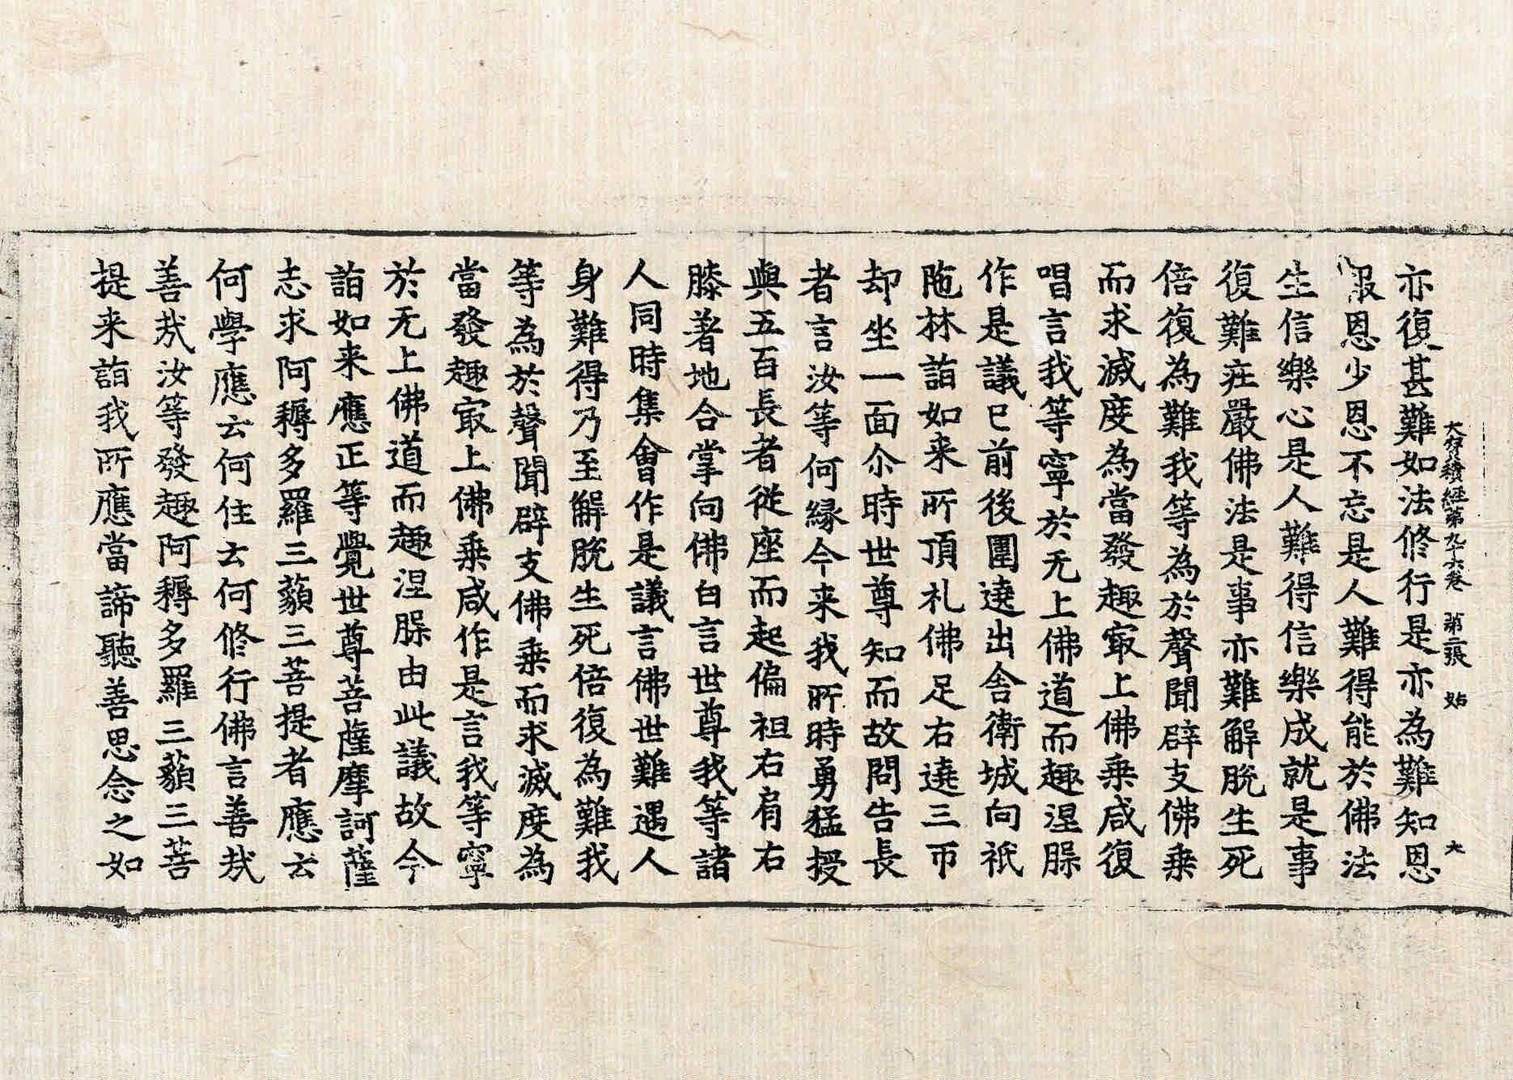 大寶積經第九十六卷 第二張 始
大
亦復甚難如法修行是亦為難知恩
報恩少恩不忘是人難得能於佛法
生信樂心是人難得信樂成就是事
復難莊嚴佛法是事亦難解脫生死
倍復為難我等為於聲聞辟支佛乗
而求滅度為當發趣㝡上佛乗咸復
唱言我等寧於无上佛道而趣涅䏶
作是議已前後圍遶出舍衛城向祇
陁林詣如来所頂礼佛足右遶三帀
却坐一面尒時世尊知而故問告長
者言汝等何緣今来我所時勇猛授
與五百長者從座而起偏袒右肩右
膝著地合掌向佛白言世尊我等諸
人同時集會作是議言佛世難遇人
身難得乃至解脫生死倍復為難我
等為於聲聞辟支佛乗而求滅度為
當發趣㝡上佛乗咸作是言我等寧
於无上佛道而趣涅䏶由此議故今
詣如来應正等覺世尊菩薩摩訶薩
志求阿耨多羅三藐三菩提者應云
何學應云何住云何修行佛言善㢤
善㢤汝等發趣阿耨多羅三藐三菩
提来詣我所應當諦聽善思念之如